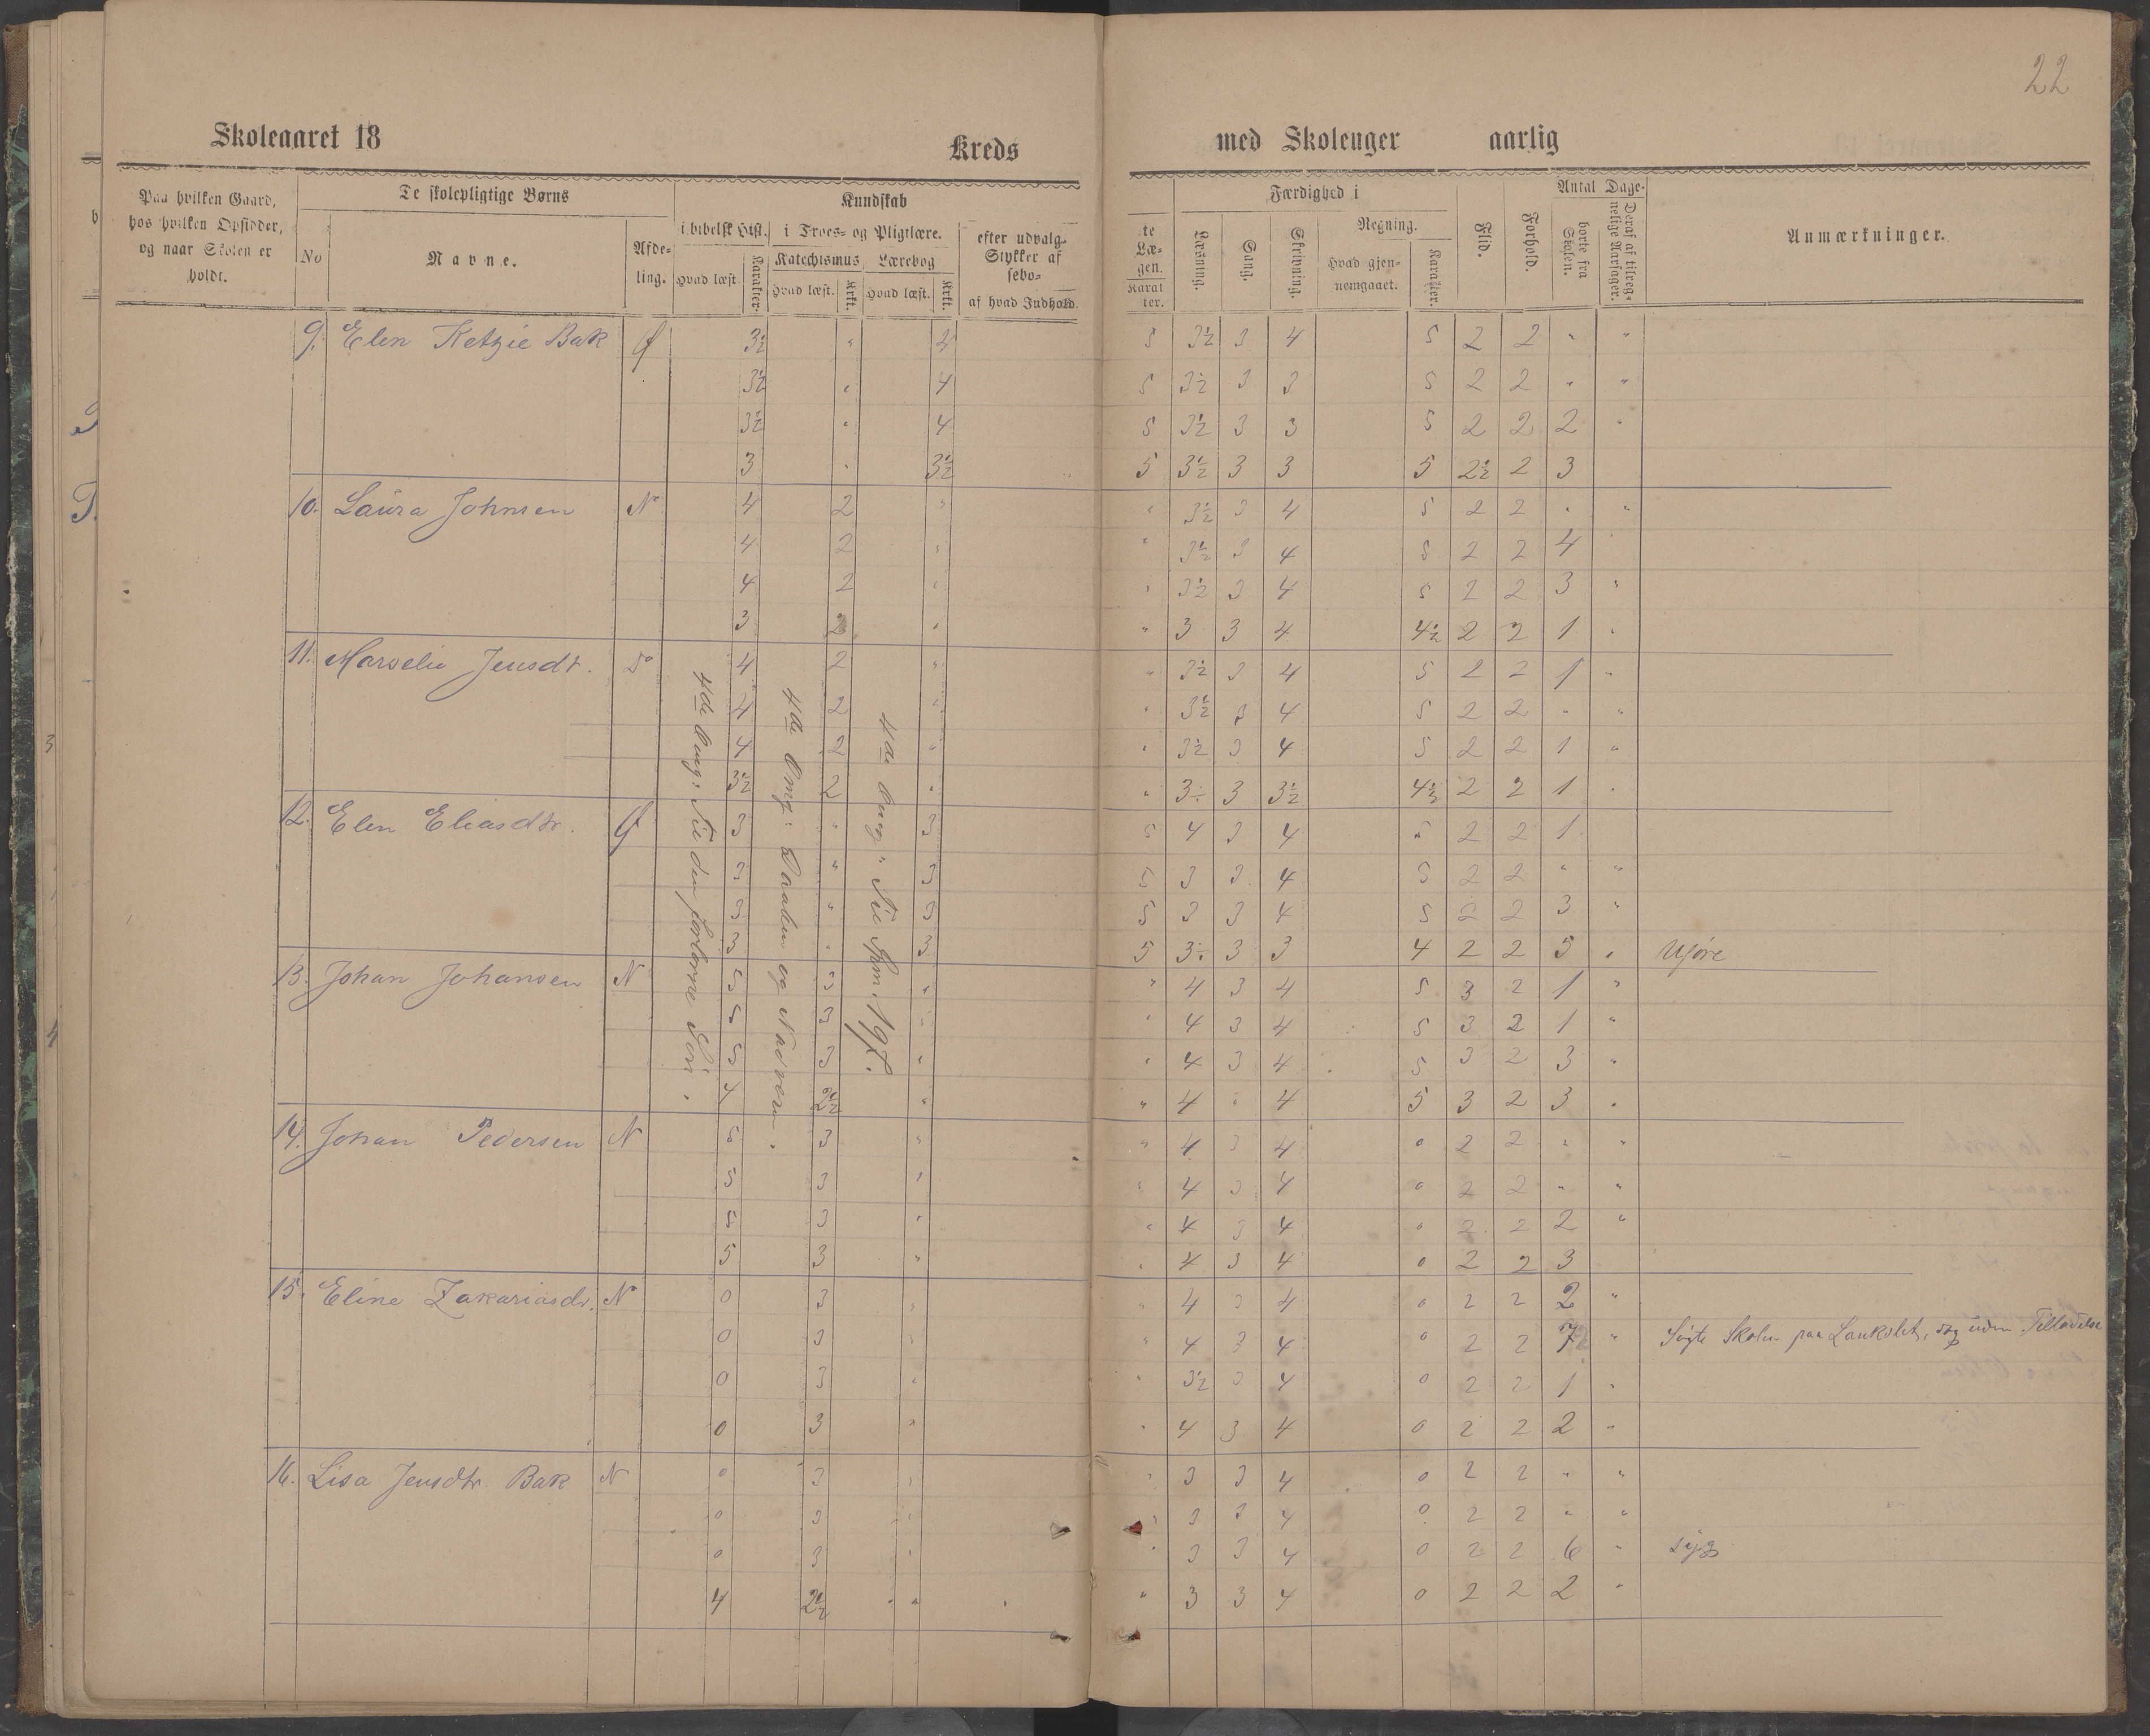 22
Skoleaaret 18 Kreds med Skoleuger aarlig
Paa hvilken Gaard,
hos hvilken Opsidder,
og naar Skolen er
holdt.
De skolepligtige Børns
No
Navne.
Afde-
ling.
Kundskab
i bibelsk Hist.
Hvad læst.
Karakter.
i Troes- og Pligtlære.
Katechismus
Hvad læst.
Krkt.
Lærebog
Hvad læst.
Krkt.
efter udvalg-
Stykker af
sebo-
af hvad Indhold.
te
Læ-
gen.
Karat
ter.
Færdighed i
Læsning.
Sang.
Skrivning.
Regning.
Hvad gjen-
nemgaaet.
Karakter.
Flid.
Forhold.
Antal Dage.
borte fra
Skolen.
Deraf af tilreg-
nelige Aarsager.
Anmærkninger.
9. Elen Ketzie Bak Ø 3½ " 4 5 3½ 3 4 5 2 2 " "
3½ " 4 5 3½ 3 3 5 2 2 " "
3½ " 4 5 3½ 3 3 5 2 2 2 "
3 " 3½ 5 3½ 3 3 5 2½ 2 3
10. Laura Johnsen N 4 2 " " 3½ 3 4 5 2 2 " "
4 2 " " 3½ 3 4 5 2 2 4 "
4 2 " " 3½ 3 4 5 2 2 3 "
3 2 " " 3 3 4 4½ 2 2 1 "
11. Marselie Jensdt. Do 4 2 " " 3½ 3 4 5 2 2 1 "
4 2 " " 3½ 3 4 5 2 2 " "
4 2 " " 3½ 3 4 5 2 2 1 "
3½ 2 " " 3÷ 3 3½ 4½ 2 2 1 "
4de Omg. Til den forlorne Søn.
4de Omg. Daaben og Nadveren.
4de Omg. Til Spm. 197.
12. Elen Eliasdtr. Ø 3 " 3 5 4 3 4 5 2 2 1
3 " 3 5 3 3 4 5 2 2 " "
3 " 3 5 3 3 4 5 2 2 3 "
3 " 3 5 3÷ 3 3 4 2 2 5 " Uføre
13. Johan Johansen N 5 3 " " 4 3 4 5 3 2 1 "
5 3 " " 4 3 4 5 3 2 1 "
5 3 " " 4 3 4 5 3 2 3 "
4 2½ " " 4 " 4 5 3 2 3 "
14. Johan Pedersen N 5 3 " " 4 3 4 0 2 2 " "
5 3 " " 4 3 4 0 2 2 " "
5 3 " " 4 3 4 0 2 2 2 "
5 3 " " 4 3 4 0 2 2 3
15. Eline Zakariasdr. N 0 3 " " 4 3 4 0 2 2 2 "
0 3 " " 4 3 4 0 2 2 7 " Søgte Skolen paa Laukslet, dog uden Tilladelse
0 3 " " 3½ 3 4 0 2 2 1 "
0 3 " " 4 3 4 0 2 2 2 "
16. Lisa Jensdtr. Bak N 0 3 " " 3 3 4 0 2 2 " "
0 3 " " 3 3 4 0 2 2 " "
0 3 " " 3 3 4 0 2 2 6 " syg
4 2½ " " 3 3 4 0 2 2 2 "